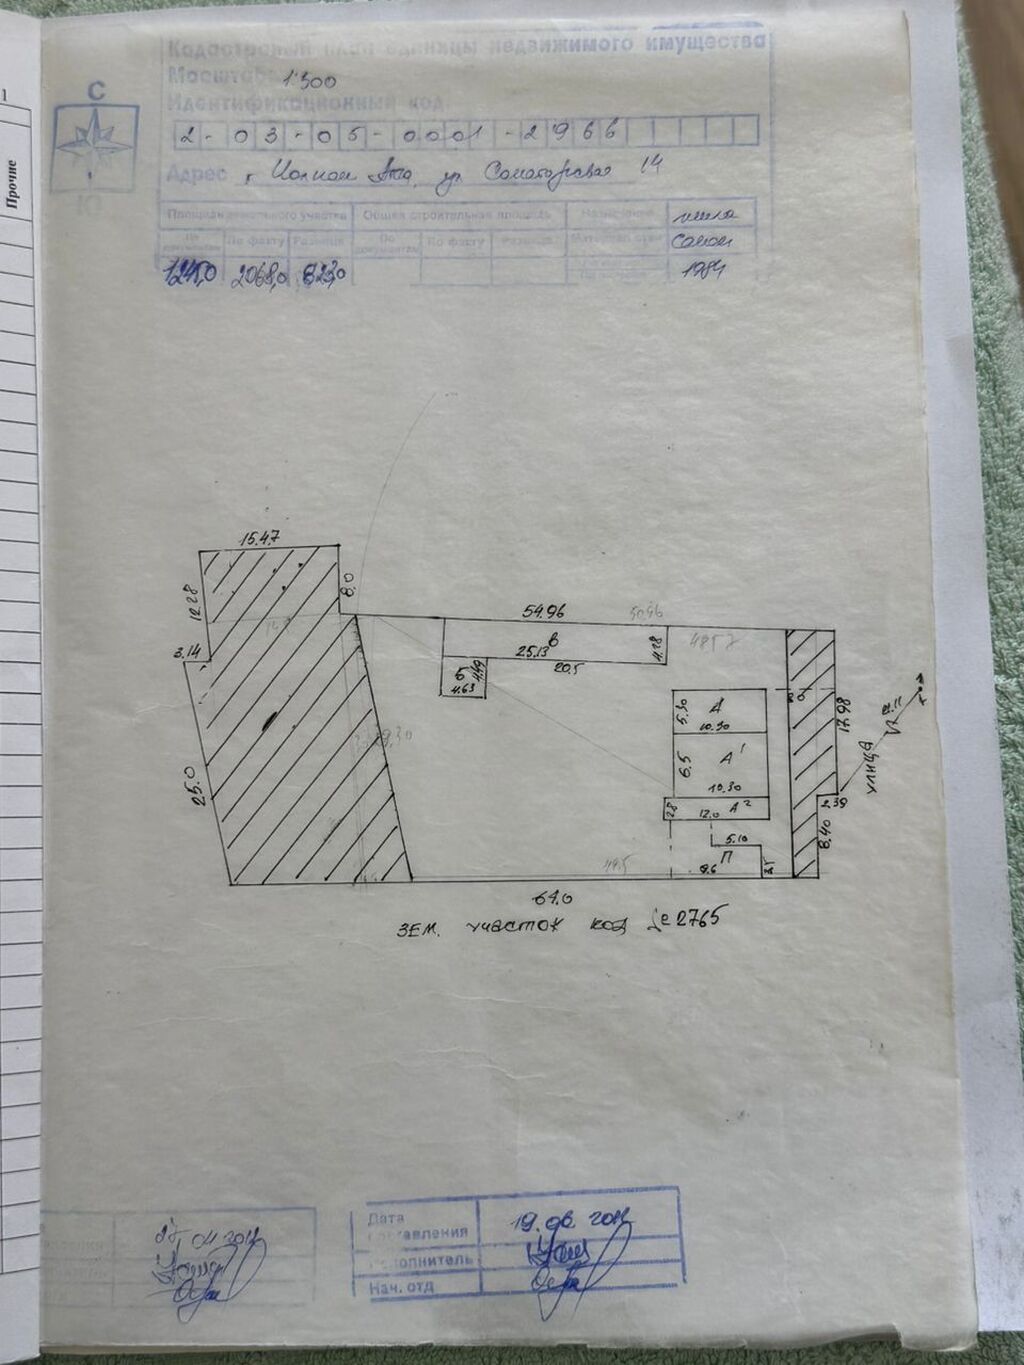 1
Прочие
С
Ю
Кадастровый план единицы недвижимого имущества
Масштаб 1:500
Идентификационный код
2-03-05-0001-2966
Адрес г. Чолпон Ата, ул. Санаторская 14
Площадь земельного участка Общая строительная площадь Назначение жилое
По документам По факту Разница По документам По факту Разница Материал стен саман
1245,0 2068,0 823,0 1984
15.47
8.0
12.28
54.96
50.96
В
4857
3.14
25.13
4.28
Б
4.49
20.5
4.63
А
5.30
10.30
17.98
А¹
6.5
10.30
25.0
2.39
2.8
12.0
А²
улица
8.40
5.10
П
8.6
49.5
64.0
ЗЕМ. УЧАСТОК КОД № 2765
Дата составления 19.06.2012
Исполнитель
Нач. отд